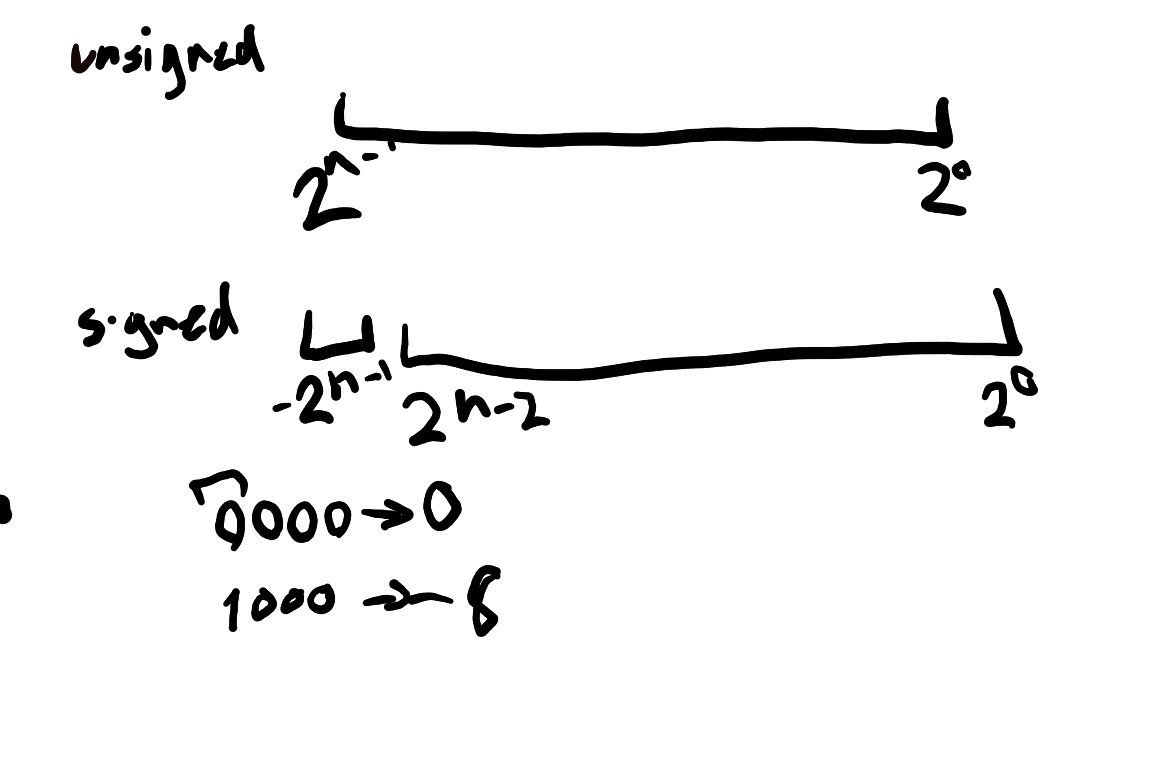 unsigned
2^n-1 2^0
signed
-2^n-1 2^n-2 2^0
0000 → 0
1000 → -8